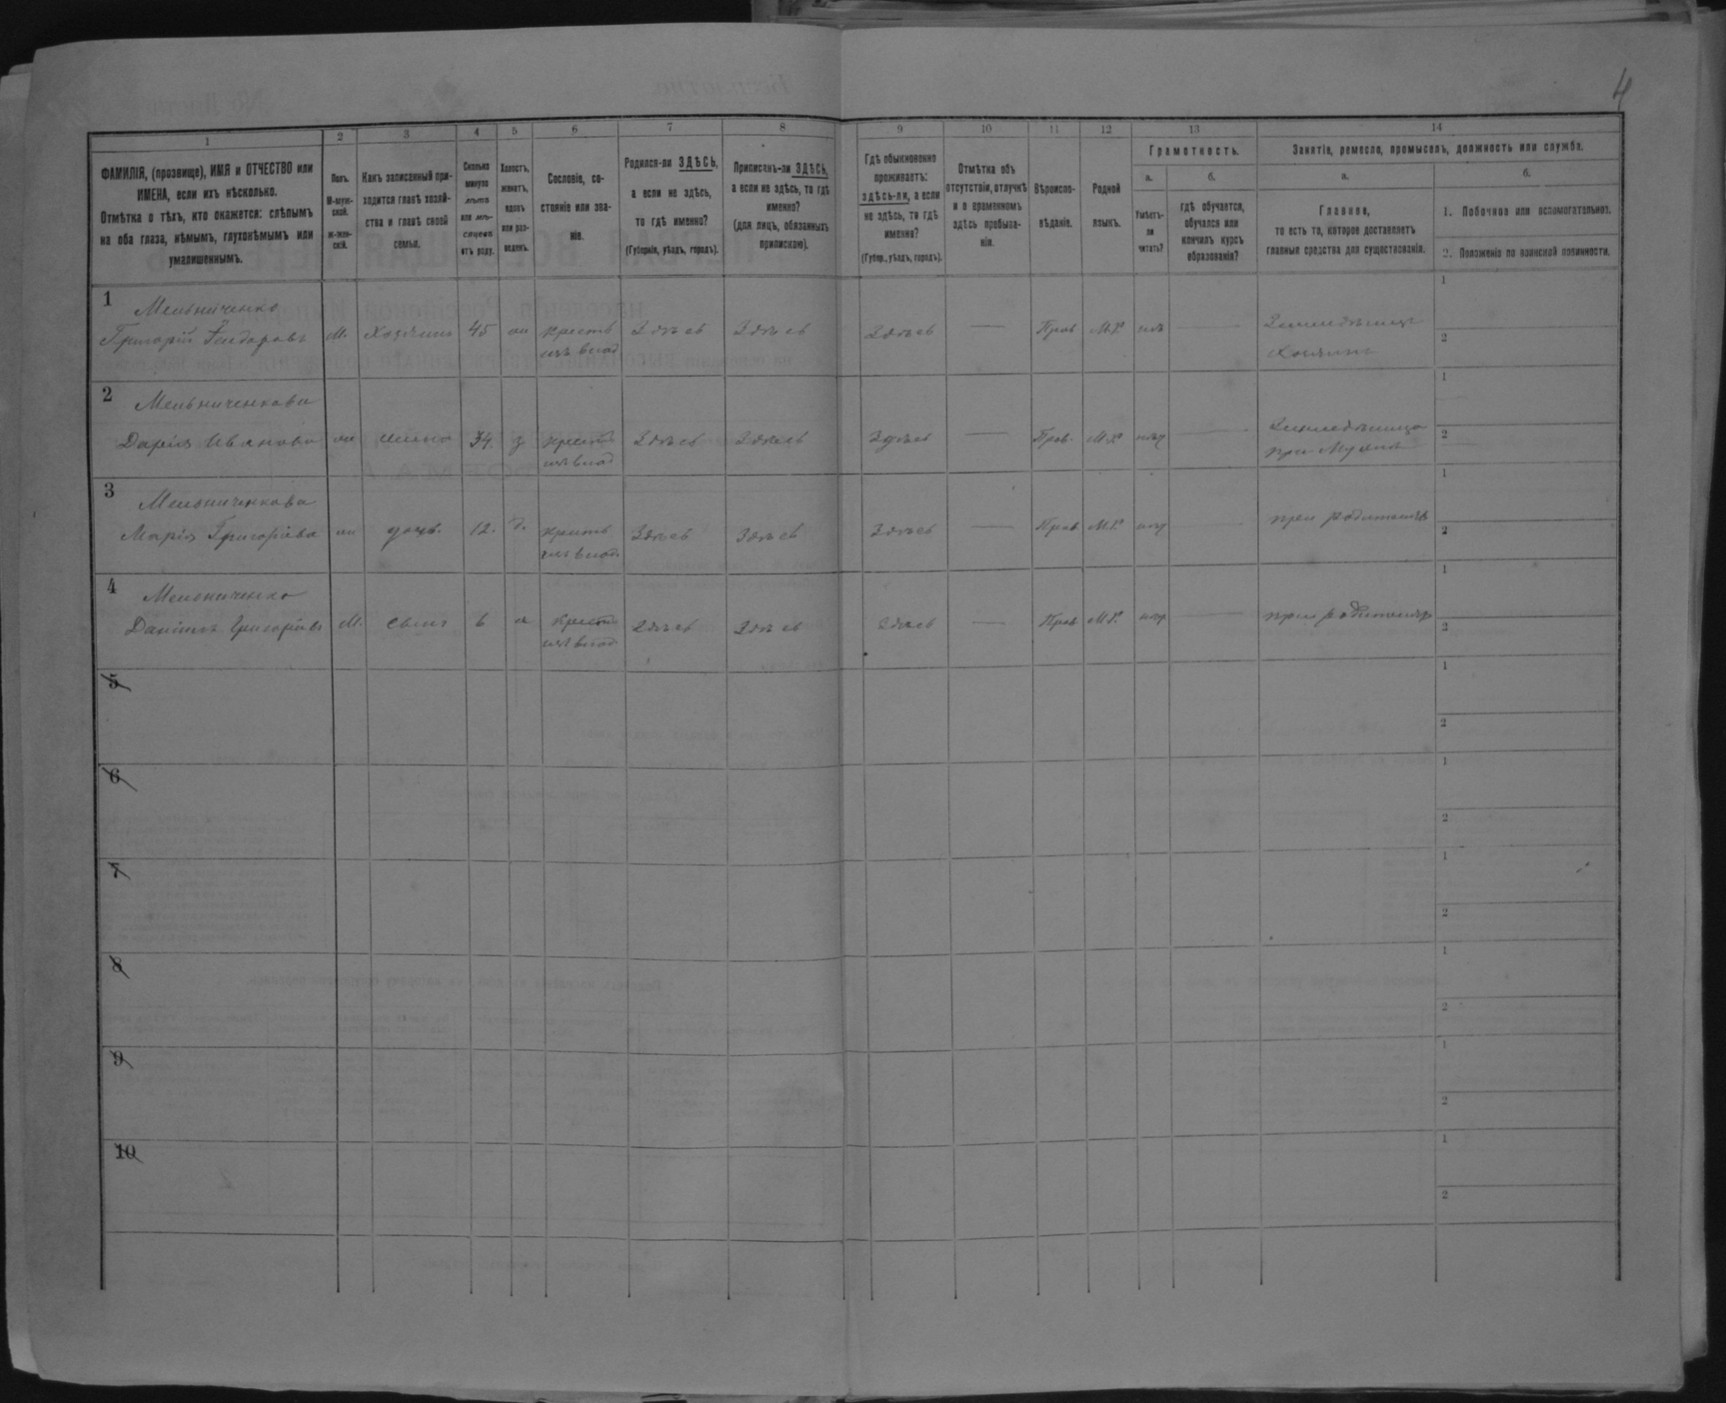 4
1 2 3 4 5 6 7 8 9 10 11 12 13 14
ФАМИЛІЯ, (прозвище), ИМЯ и ОТЧЕСТВО или
ИМЕНА, если ихъ нѣсколько.
Отмѣтка о тѣхъ, кто окажется: слѣпымъ
на оба глаза, нѣмымъ, глухонѣмымъ или
умалишеннымъ.
Полъ.
М-муж-
ской.
Ж-жен-
скій.
Какъ записанный при-
ходится главѣ хозяй-
ства и главѣ своей
семьи.
Сколько
минуло
лѣтъ
или мѣ-
сяцевъ
отъ роду.
Холостъ,
женатъ,
вдовъ
или раз-
веденъ.
Сословіе, со-
стояніе или зва-
ніе.
Родился-ли ЗДѢСЬ,
а если не здѣсь,
то гдѣ именно?
(Губернія, уѣздъ, городъ).
Приписанъ-ли ЗДѢСЬ,
а если не здѣсь, то гдѣ
именно?
(для лицъ, обязанныхъ
припискою).
Гдѣ обыкновенно
проживаетъ:
здѣсь-ли, а если
не здѣсь, то гдѣ
именно?
(Губер., уѣздъ, городъ).
Отмѣтка объ
отсутствіи, отлучкѣ
и о временномъ
здѣсь пребыва-
ніи.
Вѣроиспо-
вѣданіе.
Родной
языкъ.
Грамотность.
а.
Умѣетъ-
ли
читать?
б.
гдѣ обучается,
обучался или
кончилъ курсъ
образованія?
Занятіе, ремесло, промыселъ, должность или служба.
а.
Главное,
то есть то, которое доставляетъ
главныя средства для существованія.
б.
1. Побочное или вспомогательное.
2. Положеніе по воинской повинности.
1 Мельниченко
Григорій М. Хозяинъ 45 крестъ Здѣсь Здѣсь Здѣсь — Прав М.Р. —
1
2
2 Мельниченкова
Дарія Иванова жена 34 з крестъ Здѣсь Здѣсь Здѣсь — Прав. М.Р. —
при Мужѣ
1
2
3 Мельниченкова
Марія Григоріева дочь. 12. крестъ Здѣсь Здѣсь Здѣсь — Прав М.Р. — при родителяхъ
1
2
4 Мельниченко
Григоріевъ М. сынъ 6 крестъ Здѣсь Здѣсь Здѣсь — Прав М.Р. — при родителяхъ
1
2
5
1
2
6
1
2
7
1
2
8
1
2
9
1
2
10
1
2